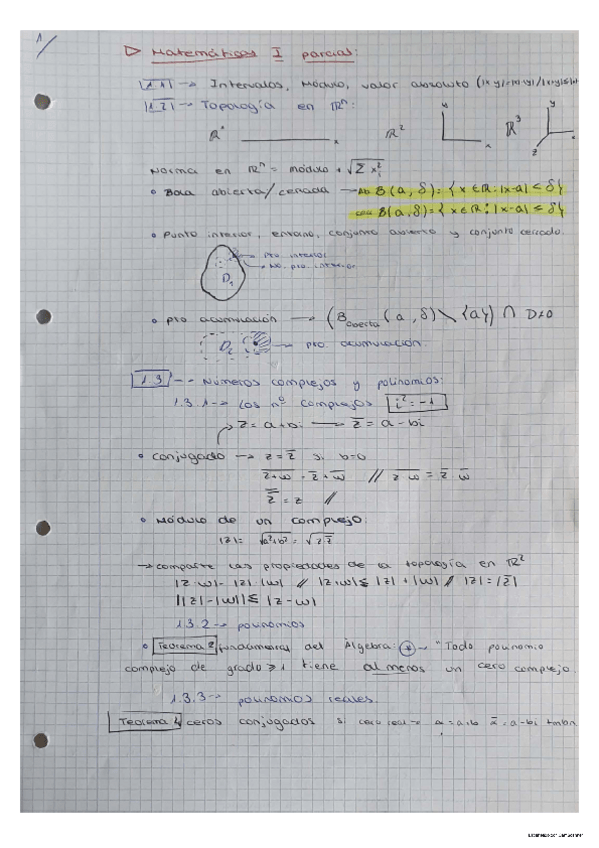 1/
▷ Matemáticas I parcial:
1.1 → Intervalos, módulo, valor absoluto
1.2 → Topología en ℝⁿ:
ℝ¹ x ℝ² y x ℝ³ y x z
Norma en ℝⁿ = módulo + √Σ xᵢ²
• Bola abierta/cerrada → B(a, δ) = {x ∈ ℝ : |x-a| ≤ δ}
B(a, δ) = {x ∈ ℝ : |x-a| ≤ δ}
• Punto interior, entorno, conjunto abierto y conjunto cerrado.
pto interior
no pto interior
D₁
• pto acumulación → (B abierta (a, δ) \ {a}) ∩ D≠0
D₂ → pto. acumulación.
1.3 → Números complejos y polinomios:
1.3.1 → Los nº complejos i² = -1
z = a+bi → z̅ = a - bi
• conjugado → z = z̅ si b=0
z+w = z̅ + w̅ // z w = z̅ · w̅
z̿ = z //
• Módulo de un complejo:
|z| = √a²+b² = √z z̅
→ comparte las propiedades de la topología en ℝ²
|z·w| = |z|·|w| // |z+w| ≤ |z| + |w| // |z| = |z̅|
||z|-|w|| ≤ |z-w|
1.3.2 → polinomios
• Teorema fundamental del Álgebra: * → "Todo polinomio
complejo de grado ≥ 1 tiene al menos un cero complejo.
1.3.3 → polinomios reales.
Teorema ceros conjugados si cero real → z̅ = a-bi tmbn.